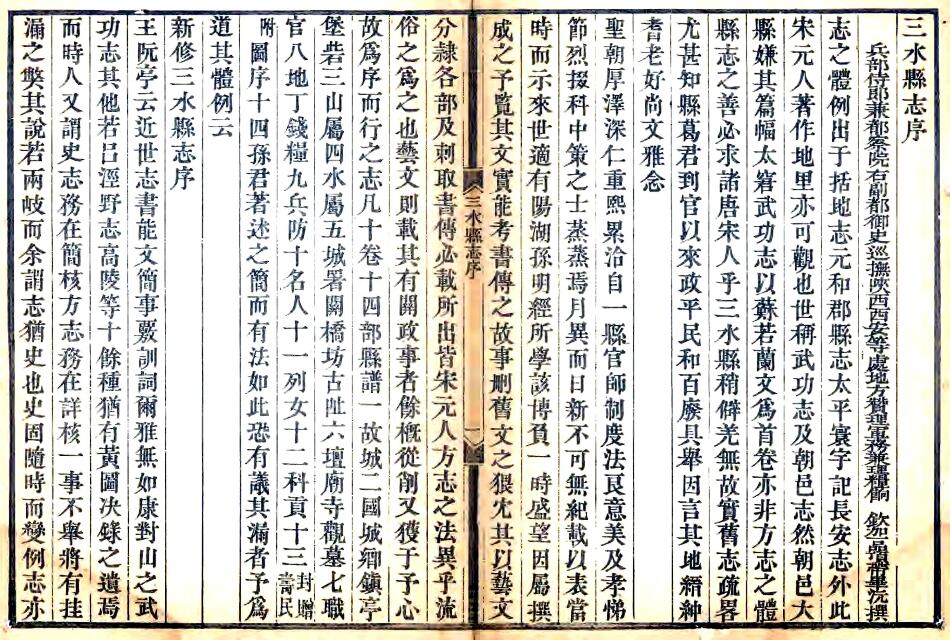 三水縣志序
兵部侍郎兼都察院右副都御史巡撫陝西西安等處地方贊理軍務兼理糧餉 欽加品頂帶畢沅撰
志之體例出于括地志元和郡縣志太平寰宇記長安志外此
宋元人著作地里亦可觀也世稱武功志及朝邑志然朝邑大
縣嫌其篇幅太窘武功志以蘇若蘭文爲首卷亦非方志之體
縣志之善必求諸唐宋人乎三水縣稍僻羌無故實舊志疏畧
尤甚知縣葛君到官以來政平民和百廢具舉因言其地縉紳
耆老好尚文雅念
聖朝厚澤深仁重熙累洽自一縣官師制度法良意美及孝悌
節烈掇科中策之士蒸蒸焉月異而日新不可無紀載以表當
時而示來世適有陽湖孫明經所學該博負一時盛望因屬撰
成之予覧其文實能考書傳之故事刪舊文之猥宂其以藝文
三水縣志序
一
分隷各部及刺取書傳必載所出皆宋元人方志之法異乎流
俗之爲之也藝文則載其有關政事者餘槪從削又獲于予心
故爲序而行之志凡十卷十四部縣譜一故城二國城鄉鎮亭
堡砦三山屬四水屬五城署關橋坊古阯六壇廟寺觀墓七職
官八地丁錢糧九兵防十名人十一列女十二科貢十三封贈壽民
附圖序十四孫君著述之簡而有法如此恐有議其漏者予爲
道其體例云
新修三水縣志序
王阮亭云近世志書能文簡事覈訓詞爾雅無如康對山之武
功志其他若呂涇野志高陵等十餘種猶有黃圖决錄之遺焉
而時人又謂史志務在簡核方志務在詳核一事不舉將有挂
漏之獘其說若兩岐而余謂志猶史也史固隨時而變例志亦